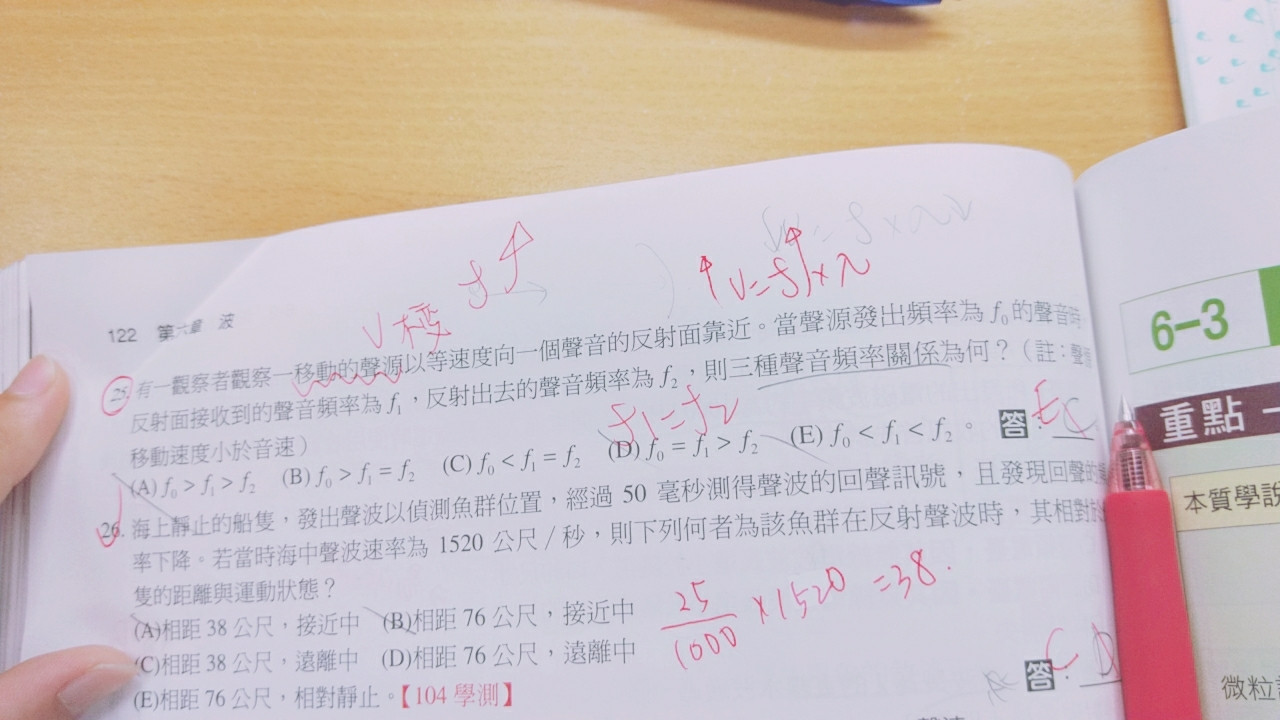 122 第六章 波
V f
V 楼
↑ v=f↑×λ
25. 有一觀察者觀察一移動的聲源以等速度向一個聲音的反射面靠近。當聲源發出頻率為 f₀ 的聲音時
反射面接收到的聲音頻率為 f₁,反射出去的聲音頻率為 f₂,則三種聲音頻率關係為何?(註:聲
移動速度小於音速)
f1=f2
(A) f₀ > f₁ > f₂ (B) f₀ > f₁ = f₂ (C) f₀ < f₁ = f₂ (D) f₀ = f₁ > f₂ (E) f₀ < f₁ < f₂。 答: E C
26. 海上靜止的船隻,發出聲波以偵測魚群位置,經過 50 毫秒測得聲波的回聲訊號,且發現回聲的
率下降。若當時海中聲波速率為 1520 公尺/秒,則下列何者為該魚群在反射聲波時,其相對於
隻的距離與運動狀態?
(A)相距 38 公尺,接近中 (B)相距 76 公尺,接近中
(C)相距 38 公尺,遠離中 (D)相距 76 公尺,遠離中
(E)相距 76 公尺,相對靜止。【104 學測】
25/1000 ×1520 =38.
答: C D
6-3
重點一
本質學說
微粒